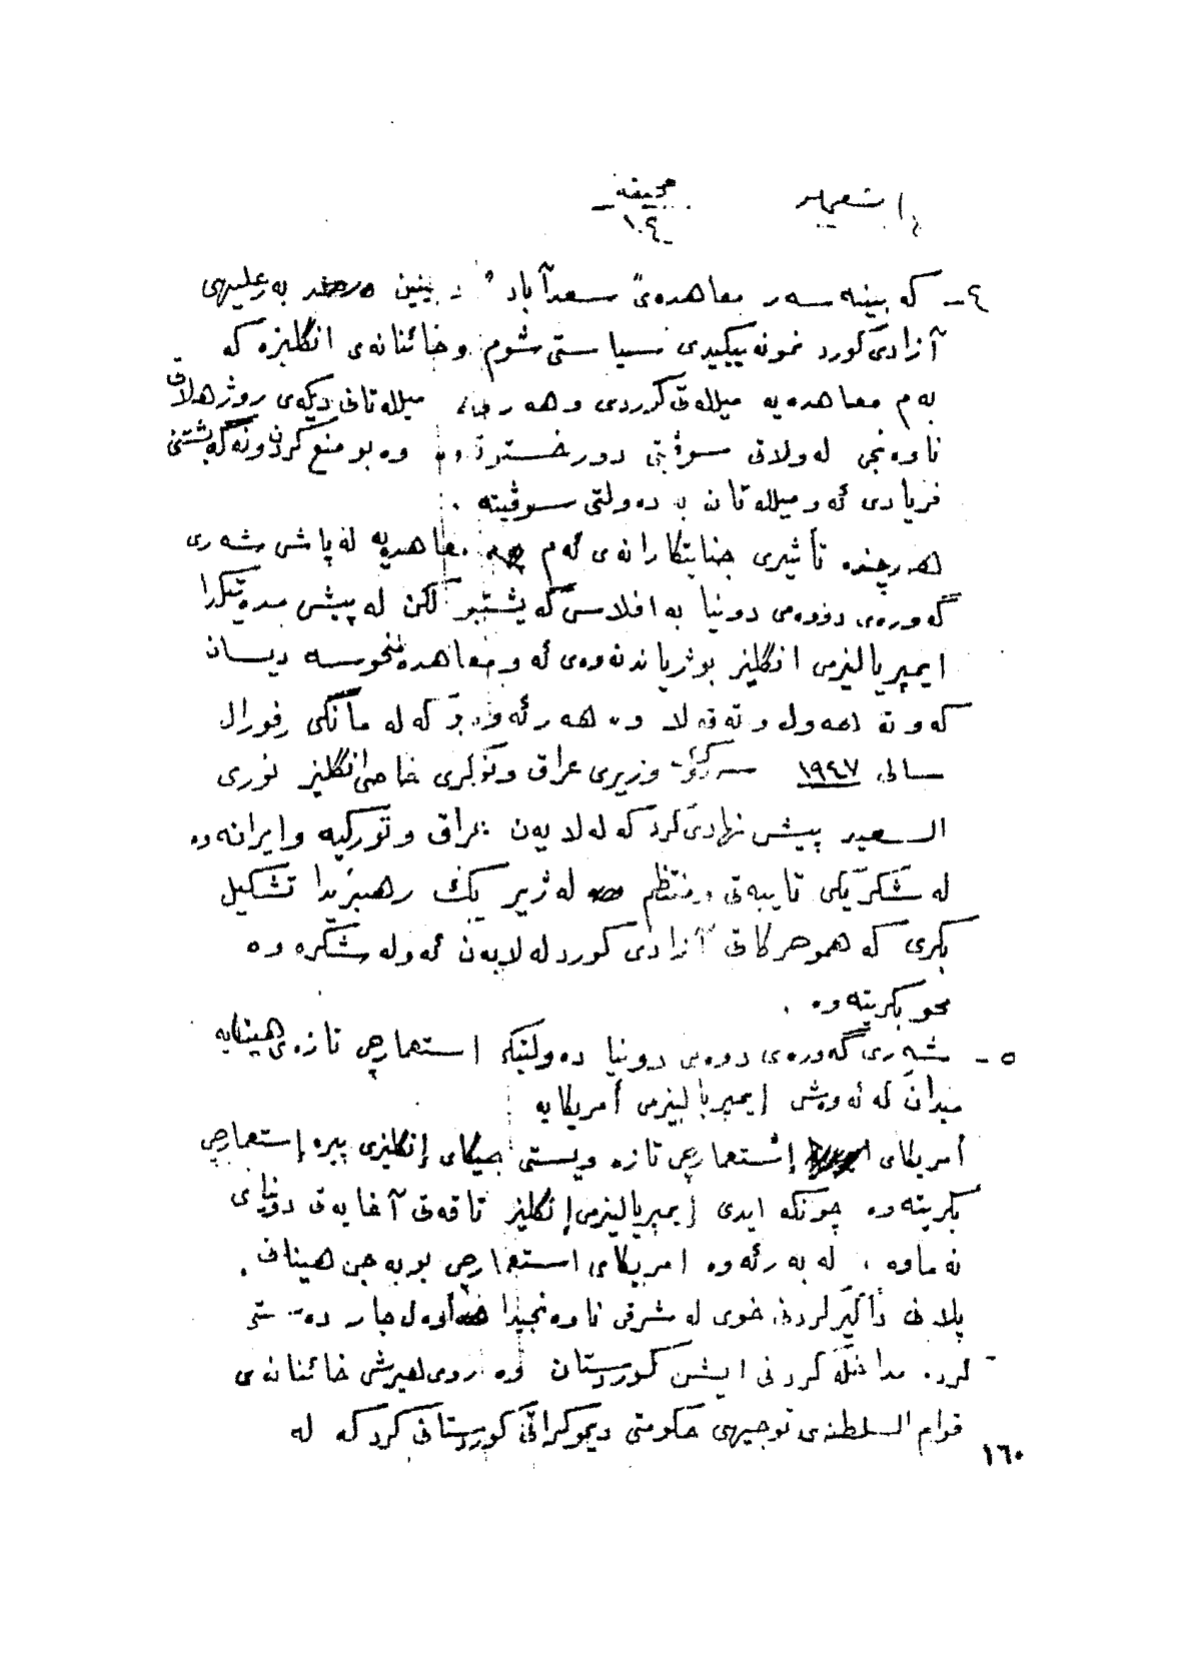 صحیفه
١٠٤
٤ـ که بینه سەر معاهدەی سعدآباد دبینین بەرعلیهی
آزادی کورد نمونەییکیدی سیاستی شوم و خائنانەی انگلیزە که
بەم معاهدەیه میللەتی کوردی و هەر میللەتانی دیکەی روژهەلاتی
ناوەنجی لەولاتی سوڤیتی دورخستو وە بو منع کردن و نەگەیشتنی
فریادی ئەو میللەتان بە دەولتی سوڤیته .
هەرچندە تأثیری جنایتکارانەی ئەم معاهدەیه لەپاش شەری
گەورەی دووەمی دونیا بە افلاس گەیشتبو لکن لە پیش
ایمپریالیزمی انگلیز بوژیاندنەوەی ئەو معاهدە منحوسه دیسان
کەوتە هەول و تەقەلا وە هەر لەمانگی
سالی ١٩٤٧ سەرک وزیری عراق ونوکری خاصی انگلیز نوری
السعید پیش نهادی کرد کە لەلایەن عراق و تورکیه و ایرانەوە
لەشکریکی تایبەتی منتظم لەژیر یک رهبریدا تشکیل
بکری کە هموحرکاتی آزادی کورد لەلایەن ئەو لەشکرەوە
محو بکریتەوە .
٥ - شەری گەورەی دوەمی دونیا دەولتیکی استعمارچی تازەی هینایه
میدان کە ئەوەش ایمپریالیزمی أمریکایه
أمریکای إستعمارچی تازە ویستی جیگای إنگلیزی پیرە إستعمارچی
بگریتەوە چونکە ایدی إیمپریالیزمی إنگلیز تاقەتی آغایەتی دونیای
نەماوە . لەبەر ئەوە امریکای استعمارچی بو بەجی هینانی
پلانی داگیرکردنی خوی لە شرقی ناوەنجیدا أوەل جار دەستی
کرد. مداخلە کردنی ایشی کوردستان وە هیرشی خائنانەی
قوام السلطنەی توجیهی حکومتی دیموکراتی کوردستانی کرد کە لە
١٦٠